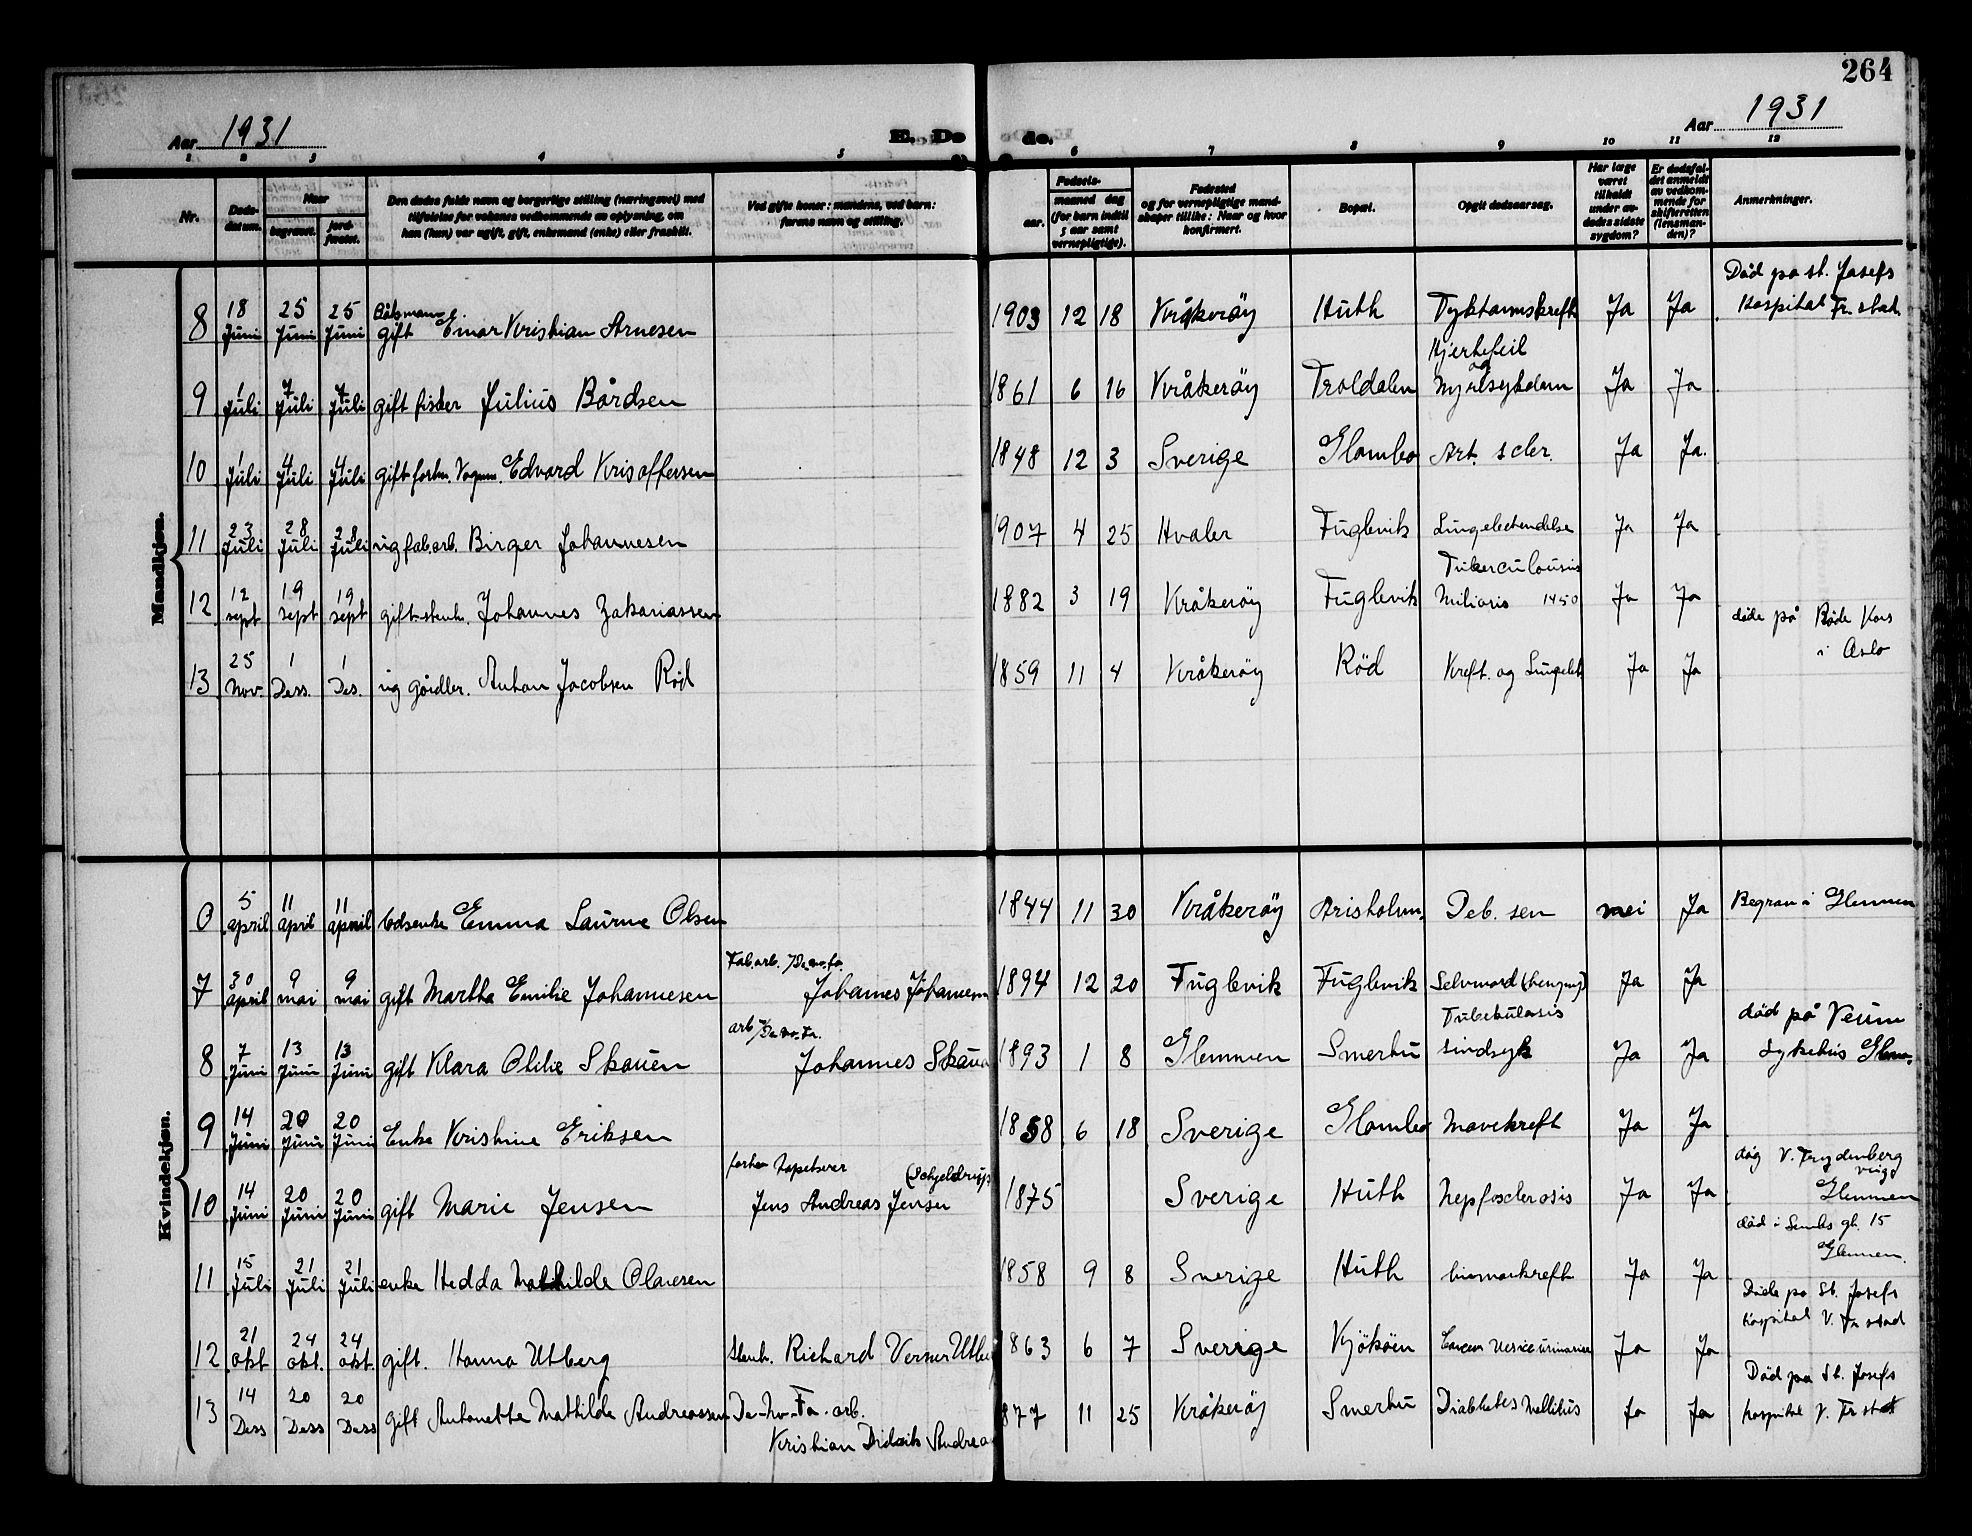 264
Aar 1931
E. Dø de.
Aar 1931
1 2 3 4 5 6 7 8 9 10 11 12
Nr.
Døds-
datum.
Naar
begravet.
jord-
fæstet.
Den dødes fulde navn og borgerlige stilling (næringsvei) med
tilføielse for voksnes vedkommende av oplysning, om
han (hun) var ugift, gift, enkemand (enke) eller fraskilt.
Ved gifte koner: mandens, ved barn:
farens navn og stilling.
Fødsels-
aar.
maaned dag
(for barn indtil
5 aar samt
vernepligtige).
Fødested
og for vernepligtige mand-
skaper tillike: Naar og hvor
konfirmert.
Bopæl.
Opgit dødsaarsag.
Har læge
været
tilkaldt
under av-
dødes sidste
sygdom?
Er dødsfal-
det anmeldt
av vedkom-
mende for
skifteretten
(lensman-
den)?
Anmerkninger.
Mandkjøn.
8 18 Juni 25 Juni 25 Juni Båtsmann gift Einar Kristian Arnesen 1903 12 18 Kråkerøy Huth Tyktarmskreft Ja Ja Død på st. Josefs Hospital Fr. stad
9 1 Juli 7 Juli 7 Juli gift fisker Julius Bårdsen 1861 6 16 Kråkerøy Troldalen Hjertefeil og Nyresykdom Ja Ja
10 1 Juli 4 Juli 4 Juli gift forhv. Vognm. Edvard Krisoffersen 1848 12 3 Sverige Glombo Art. scler. Ja Ja.
11 23 Juli 28 Juli 28 Juli ug fab.arb. Birger Johannesen 1907 4 25 Hvaler Fuglevik Lungebetendelse Ja Ja
12 12 sept 19 sept 19 sept gift stenh. Johannes Zakariassen 1882 3 19 Kråkerøy Fuglevik Tuberculousis Miliaris 1450 Ja Ja
13 25 Nov. 1 Dess. 1 Des. ug gårdbr. Anton Jacobsen Rød 1859 11 4 Kråkerøy Rød Kreft. og Lungebet Ja Ja døde på Røde Kors i Oslo
Kvindekjøn.
6 5 april 11 april 11 april Emma Laurine Olsen 1844 11 30 Kråkerøy Arisholm. Deb. sen nei Ja Begrav i Glemmen
7 30 april 9 mai 9 mai gift Martha Emilie Johannesen Fab.arb. /De.no.fa. Johannes Johannesen 1894 12 20 Fuglevik Fuglevik Selvmord (hengning) Ja Ja
8 7 Juni 13 Juni 13 Juni gift Klara Otilie Skauen arb /De.no.Fa. Johannes Skauen 1893 1 8 Glemmen Smertu Tubekulosis sindsyk Ja Ja død på Veum Sykehus Glem.
9 14 Juni 20 Juni 20 Juni Enke Kristine Eriksen 1858 6 18 Sverige Glombo Mavekreft Ja Ja
10 14 Juni 20 Juni 20 Juni gift Marie Jensen forhv tapetserer (Schjeldrup) Jens Andreas Jensen 1875 Sverige Huth Nepfosclerosis Ja Ja V. Frydenberg Glemmen
11 15 Juli 21 Juli 21 Juli enke Hedda Mathilde Olavesen 1858 9 8 Sverige Huth livmorkreft Ja Ja død i gt. 15 Glemmen.
12 21 okt 24 okt. 24 okt. gift. Hanna Utberg Stenh. Richard Verner Utberg 1863 6 7 Sverige Kjøkøen Cancer vesice urinarise Ja Ja Døde på St. Josefs Hospital V. Fr stad
13 14 Dess 20 Dess 20 Dess gift Antonette Mathilde Andreassen De-No-Fa. arb. Kristian Didrik Andrea 1877 11 25 Kråkerøy Smertu Diabhetes Mellitus Ja Ja Død på St. Josefs hospital V. Fr stad